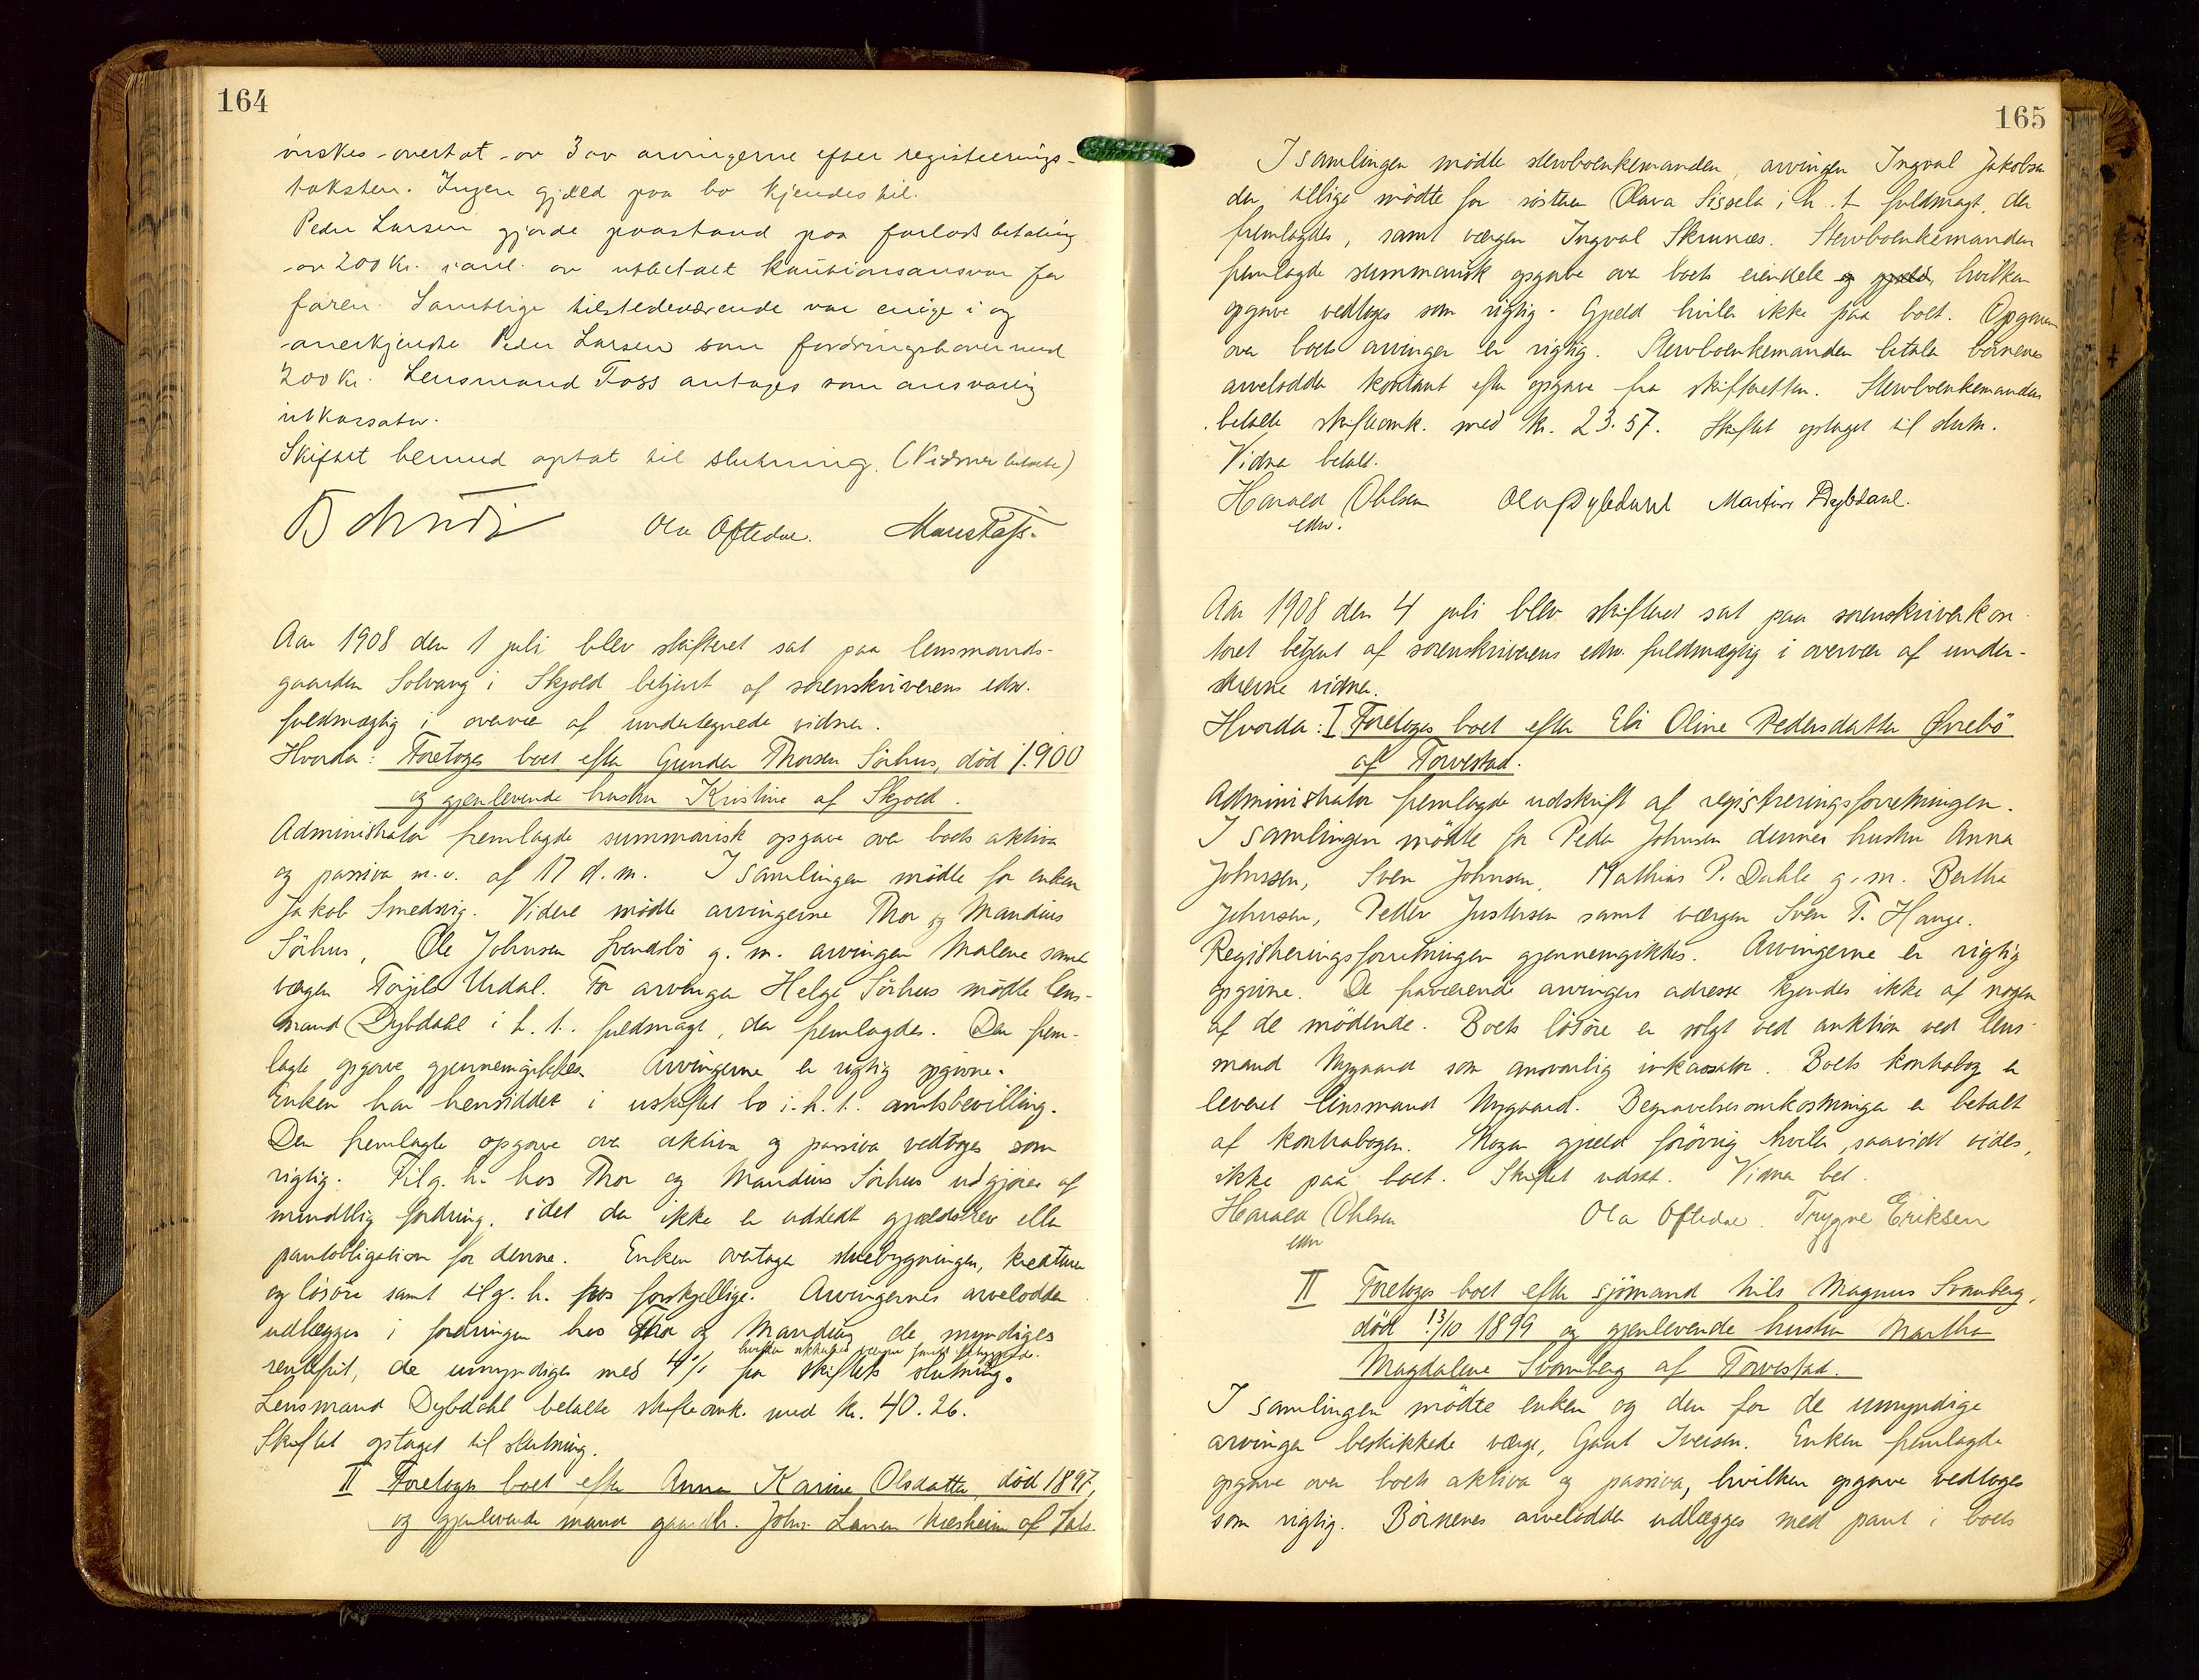 164
ønskes overtat av 3 av arvingerne efter registrerings-
taksten. Ingen gjæld paa bo kjendes til.
Peder Larsen gjorde paastand paa forlods betaling
av 200 kr. i anl. av utbetalt kautionsansvar for
faren. Samtlige tilstedeværende var enige i og
anerkjendte Peder Larsen som fordringshaver med
200 kr. Lensmand Foss antages som ansvarlig
inkassator.
Skiftet hermed optat til slutning. (Vidner betalte)
Ola Oftedal.
Aar 1908 den 1 juli blev skifteret sat paa lensmands-
gaarden Solvang i Skjold betjent af sorenskriverens edsv.
fuldmægtig i overvær af undertegnede vidner.
Hvorda: Foretoges boet efter Gunder Thorsen Sörhus, död 1900
og gjenlevende hustru Kristine af Skjold.
Administrator fremlagde summarisk opgave over boets aktiva
og passiva m.v. af 17 d.m. I samlingen mödte for enken
Jakob Smedsvig. Videre mödte arvingerne Thor og Mandius
Sörhus, Ole Johnsen Svendsbö g. m. arvingen Malene samt
vergen Torjils Urdal. For arvingen Helge Sörhus mödte lens-
mand Dybdahl i h. t. fuldmagt, der fremlagdes. Den frem-
lagte opgave gjennemgikkes. Arvingerne er rigtig opgivne.
Enken har hensiddet i uskiftet bo i. h. t. amtsbevilling.
Den fremlagte opgave over aktiva og passiva vedtoges som
rigtig. Tilg. h. hos Thor og Mandius Sörhus udgjöres af
mundtlig fordring, idet der ikke er uddedt gjældsbrev eller
pantobligation for denne. Enken overtager stuebygningen, kreaturer
og lösöre samt tilg. h. hos forskjellige. Arvingernes arvelodder
udlægges i fordringen hos Thor og Mandius, de myndiges
rentefrit, de umyndiges med 4% fra skiftets slutning.
Lensmand Dybdahl betalte skifteomk. med kr. 40.26.
Skiftet optaget til slutning.
II Foretoges boet efter Anna Karine Olsdatter, död 1897,
og gjenlevende mand gaardbr. John Larsen Næsheim af Vats.
165
I samlingen mödte sterboenkemanden, arvingen Ingval Jakobsen
der tillige mödte for sösteren Olava Sissela i h. t. fuldmagt, der
fremlagdes, samt vergen Ingval Skrunæs. Sterboenkemanden
fremlagde summarisk opgave over boets eiendele og gjæld, hvilken
opgave vedtoges som rigtig. Gjæld hviler ikke paa boet. Opgaven
over boets arvinger er rigtig. Sterboenkemanden betaler börnenes
arvelodder kontant efter opgave fra skifteretten. Sterboenkemanden
betalte skifteomk. med kr. 23.57. Skiftet optaget til slutn.
Vidner betalt.
Harald Ohlsen Ola Dybdahl Martin Dybdahl.
edsv.
Aar 1908 den 4 juli blev skifteret sat paa sorenskriverkon-
toret betjent af sorenskriverens edsv. fuldmægtig i overvær af under-
skrevne vidner.
Hvorda: I Foretoges boet efter Eli Oline Pedersdatter Øvrebö
af Torvestad.
Administrator fremlagde udskrift af registreringsforretningen.
I samlingen mödte for Peder Johnsen dennes hustru Anna
Johnsen, Sven Johnsen, Mathias P. Dahle g. m. Berthe
Johnsen, Peder Justersen samt vergen Sven T. Hauge.
Registreringsforretningen gjennemgikkes. Arvingerne er rigtig
opgivne. De fraværende arvingers adresse kjendes ikke af nogen
af de mödende. Boets lösöre er solgt ved auktion ved lens-
mand Nygaard som ansvarlig inkassator. Boets kontrabog er
leveret lensmand Nygaard. Begravelsesomkostninger er betalt
af kontrabogen. Nogen gjæld forövrig hviler, saavidt vides,
ikke paa boet. Skiftet udsat. Vidner bet.
Harald Ohlsen Ola Oftedal. Trygve Eriksen
edsv
II Foretoges boet efter sjömand Nils Magnus Svanberg,
död 13/10 1899 og gjenlevende hustru Martha
Magdalene Svanberg af Torvestad.
I samlingen mödte enken og den for de umyndige
arvinger beskikkede verge, Gaut Iversen. Enken fremlagde
opgave over boets aktiva og passiva, hvilken opgave vedtoges
som rigtig. Börnenes arvelodder udlægges med pant i boets